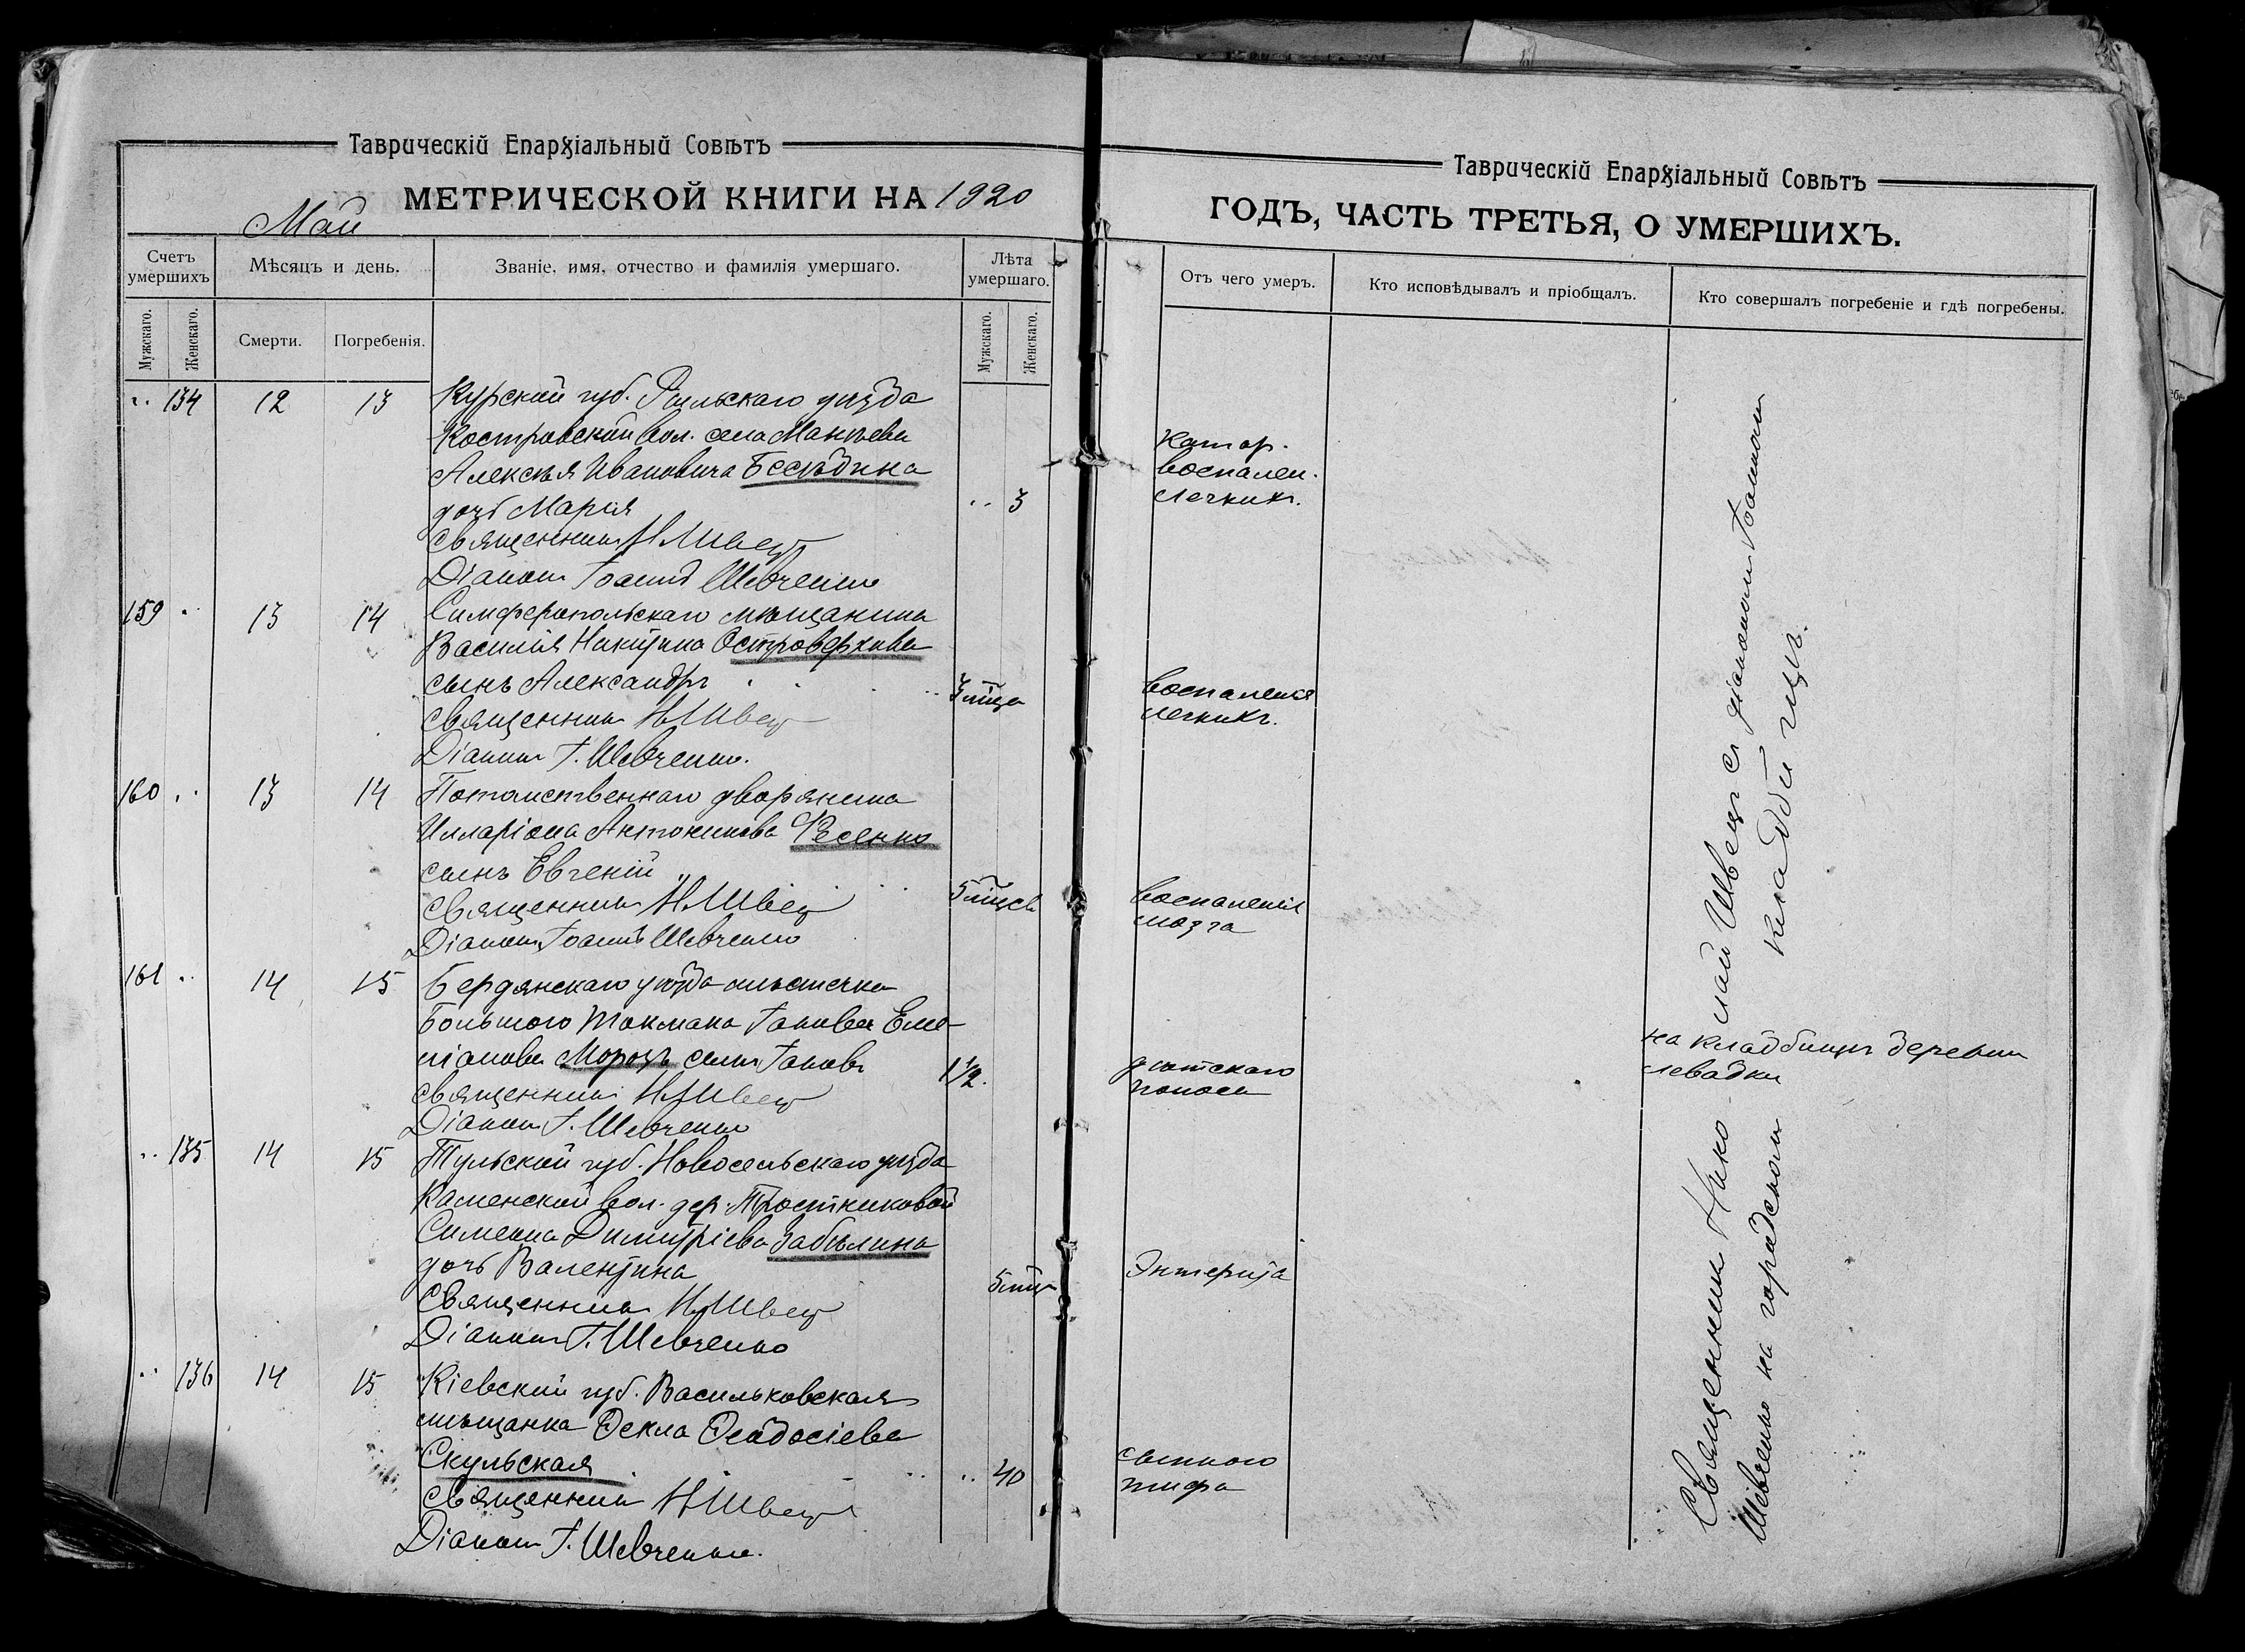 Таврическій Епархіальный Совѣтъ
МЕТРИЧЕСКОЙ КНИГИ НА 1920
Май
Счетъ умершихъ
Мѣсяцъ и день.
Званіе, имя, отчество и фамилія умершаго.
Лѣта умершаго.
Мужскаго.
Женскаго.
Смерти.
Погребенія.
Мужскаго.
Женскаго.
Таврическій Епархіальный Совѣтъ
ГОДЪ, ЧАСТЬ ТРЕТЬЯ, О УМЕРШИХЪ.
Отъ чего умеръ.
Кто исповѣдывалъ и пріобщалъ.
Кто совершалъ погребеніе и гдѣ погребены.
134 12 13 Курской губ. Рыльскаго уѣзда
Костровской вол. села Манѣева
Алексѣя Ивановича Бесѣдина
дочь Марія 3
Катар.
воспален.
легкихъ.
Священникъ Н Швецъ
Діаконъ Іоаннъ Шевченко
159 13 14 Симферопольскаго мѣщанина
Василія Никитина Островерхова
сынъ Александръ 3 мѣца
воспаленія
легкихъ.
Священникъ Н Швецъ
Діаконъ І. Шевченко.
160 13 14 Потомственнаго дворянина
Илларіона Антонинова Фесенко
сынъ Евгеній 5 мѣцев
воспаленія
мозга
Священникъ Н. Швецъ
Діаконъ Іоаннъ Шевченко
161 14 15 Бердянскаго уѣзда мѣстечка
Большого Токмака Іакова Еме-
ліанова Морозъ сынъ Іаковъ 1 1/2.
дѣтскаго
поноса
на кладбищѣ деревни
Левадки
Священникъ Н Швецъ
Діаконъ І. Шевченко
135 14 15 Тульской губ. Новосельскаго уѣзда
Каменской вол. дер. Тростниковой
Симеона Димитріева Забѣлина
дочь Валентина 5 мѣц
Энтерита
Священникъ Н Швецъ
Діаконъ І. Шевченко
136 14 15 Кіевской губ. Васильковская
мѣщанка Ѳекла Ѳеодосіева
Скульская 40
сыпного
тифа
Священникъ Н Швецъ
Діаконъ І. Шевченко.
Священникъ Нико-лай Швецъ съ діакономъ Іоанномъ
Шевченко на городскомъ кладбищѣ.